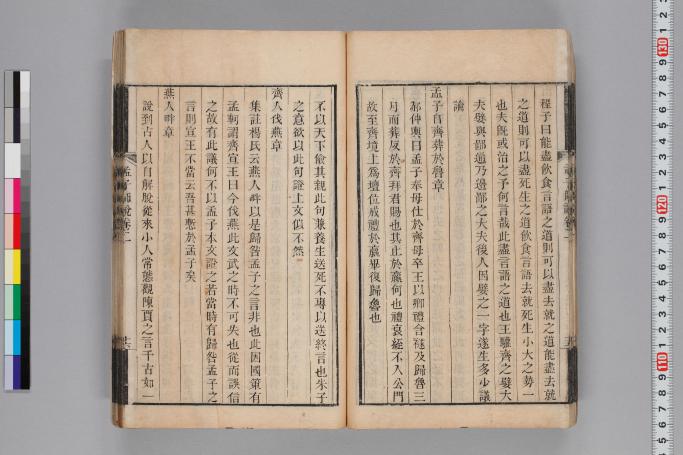 程子曰能盡飲食言語之道則可以盡去就之道能盡去就
之道則可以盡死生之道飲食言語去就死生小大之勢一
也夫既或治之予何言哉此盡言語之道也王驩齊之嬖大
夫嬖與鄙通乃邊鄙之大夫後人因嬖之一字遂生多少議
論
孟子自齊葬於魯章
郝仲輿曰孟子奉母仕於齊母卒王以卿禮含襚及歸魯三
月而葬反於齊拜君賜也其止於嬴何也禮衰絰不入公門
故至齊境上為壇位成禮於嬴畢復歸魯也
不以天下儉其親此句兼養生送死不專以送終言也朱子
之意欲以此句證上文似不然
齊人伐燕章
集註楊氏云燕人畔以是歸咎孟子之言非也此因國策有
孟軻謂齊宣王曰今伐燕此文武之時不可失也從而誤信
之故有此議何不以孟子本文證之若當時有歸咎孟子之
言則宣王不當云吾甚慙於孟子矣
燕人畔章
說到古人以自解脫從來小人常態觀陳賈之言千古如一
孟子師說卷二